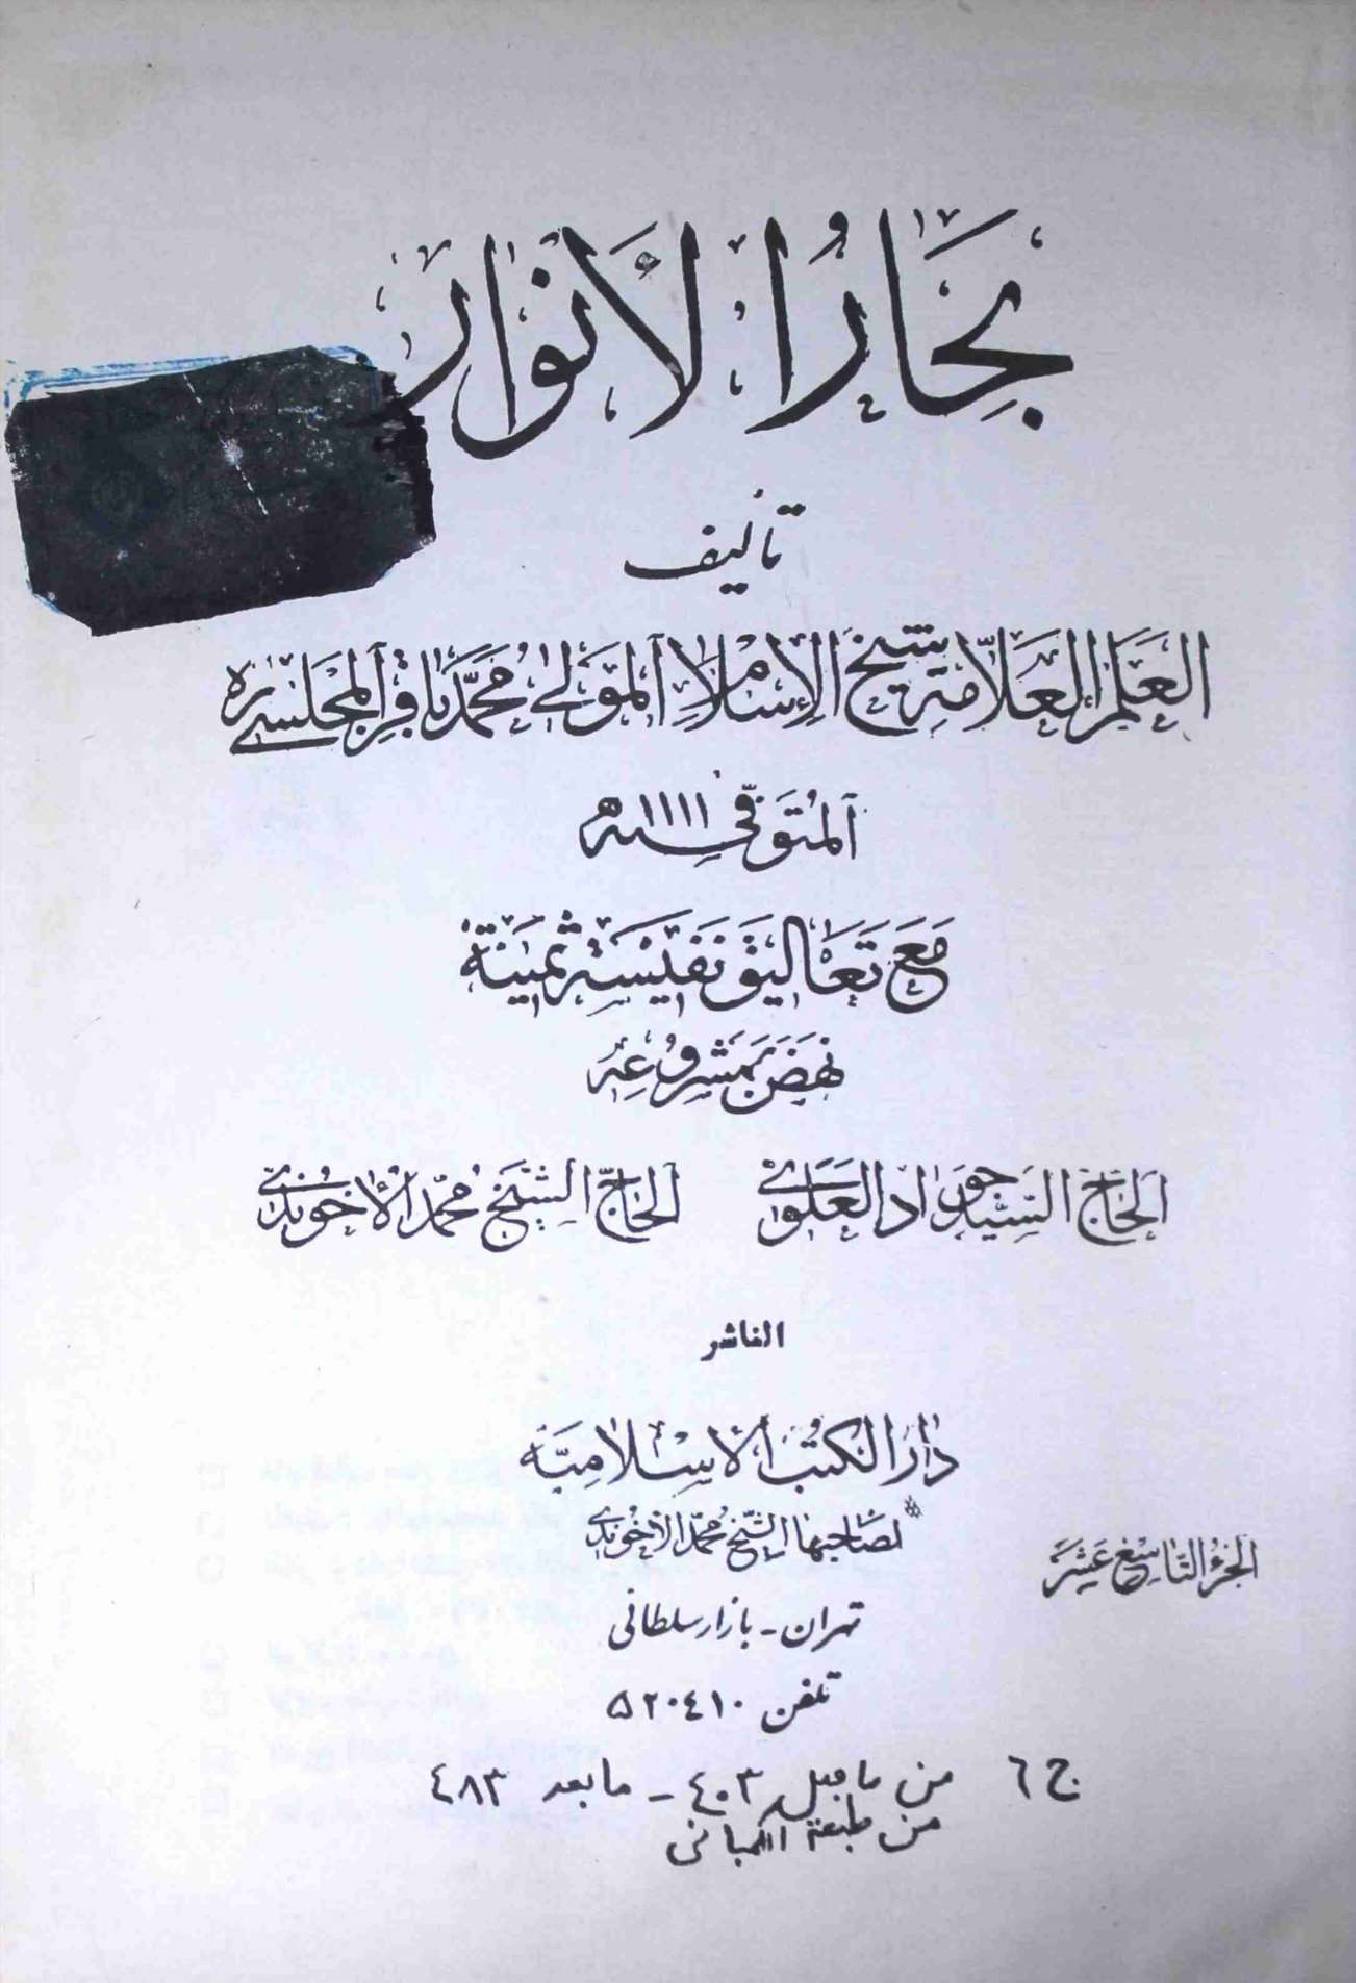 بِحَارُ الْأَنْوَار
تأليف
العَلَمِ العَلّامَةِ شَيْخِ الإسْلامِ المَوْلى مُحَمَّد بَاقِر المَجْلِسِي ره
المُتَوَفّى سنة ١١١١ هـ
مَعَ تَعَاليقَ نَفيسَةٍ ثَمينَةٍ
نَهَضَ بِمَشْرُوعِهِ
الحَاجّ السَّيّد جَوَاد العَلَوي الحَاجّ الشَّيْخ مُحَمَّد الآخُوندي
الناشر
دَارُ الكُتُب الإسْلامِيَّة
* لصَاحِبهَا الشَّيْخ مُحَمَّد الآخُوندي
الجُزءُ التَّاسِعُ عَشَر
تهران - بازار سلطانی
تلفن ٥٢٠٤١٠
ج ٦ من ما قبل ٤٠٣ - ما بعد ٤٨٣
من طبعة الكمباني